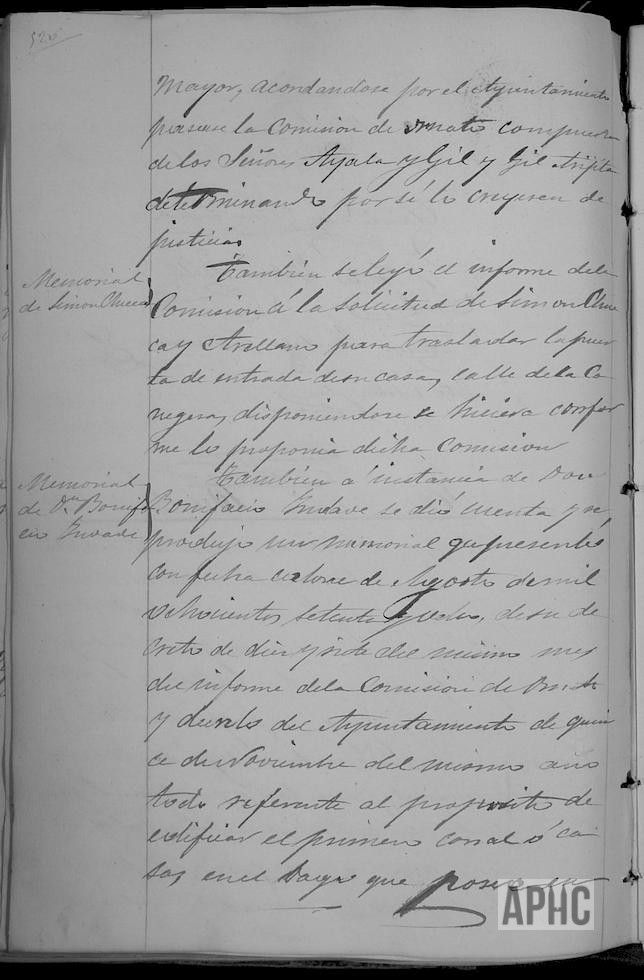 520
Mayor, acordandose por el Ayuntamiento
pasase la Comision de ornato compuesta
de los Señores Ayala y Gil y Gil
determinando por sí lo creyesen de
justicia,
Memorial
de Simon Chueca
Tambien se leyó el informe dela
Comision á la solicitud de Simon Chue
ca y Arellano para trasladar la puer
ta de entrada desu casa, calle dela Ca
negera, disponiendose se hiciera confor
me lo proponia dicha Comision
Memorial
de Dn Bonifa
cio Yndave
Tambien á instancia de Don
Bonifacio Yndave se dió cuenta y se
produjo un memorial que presentó
con fecha catorce de Agosto de mil
ochocientos setenta y ocho, desu de
creto de diez y siete del mismo mes
del informe dela Comision de Ornato
y decreto del Ayuntamiento de quin
ce de Noviembre del mismo año
todo referente al proposito de
edificar el primero corral ó ca
sa, en el que posee en
APHC